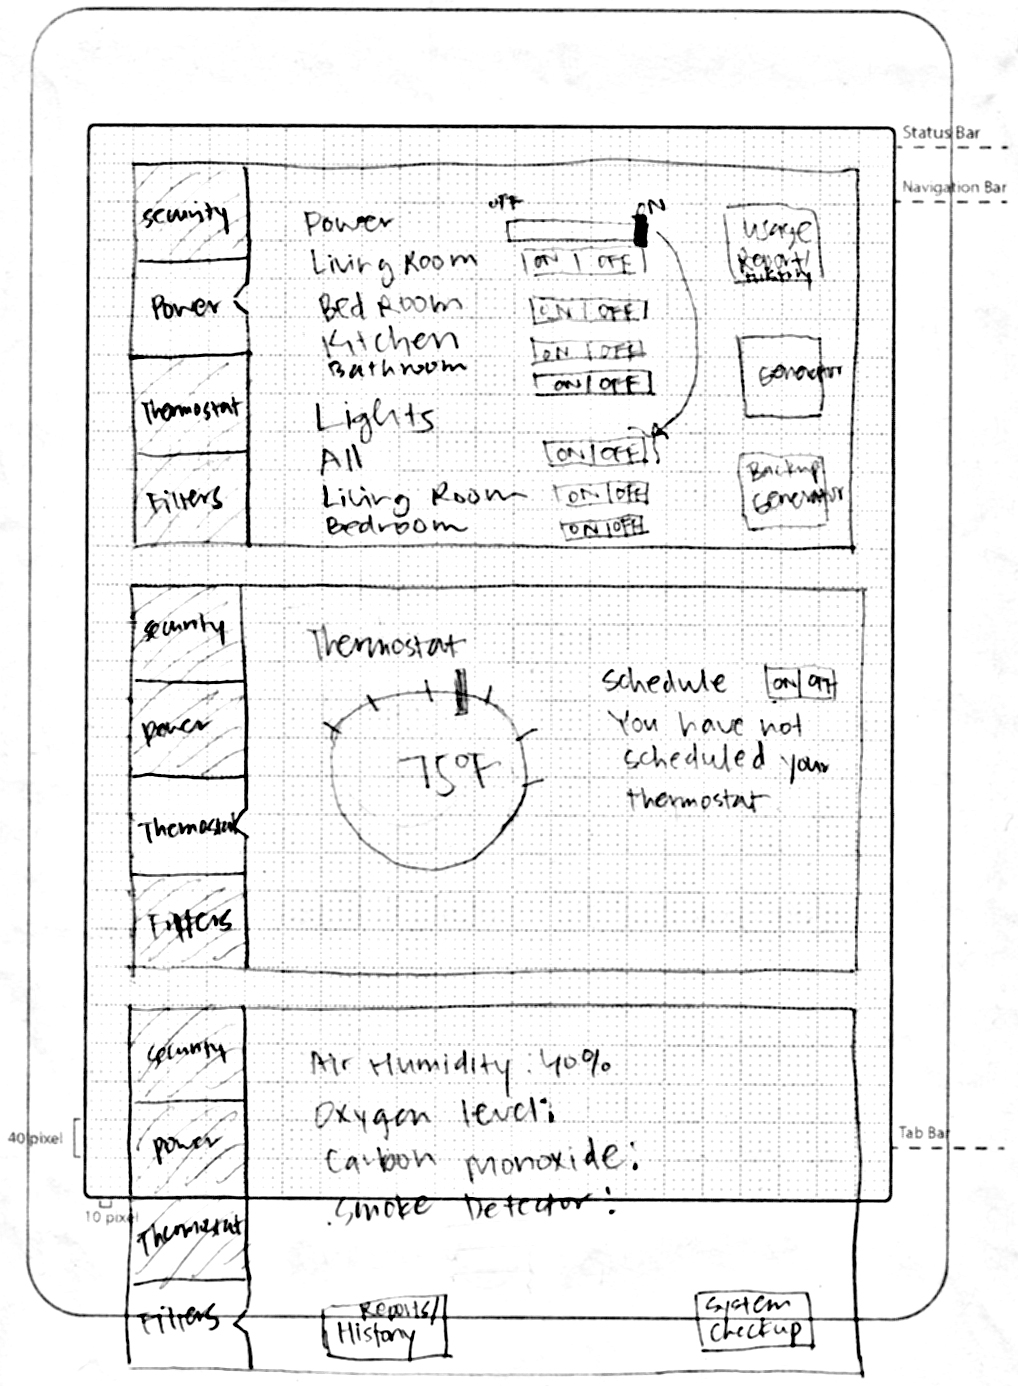 Status Bar
Navigation Bar
Security
Power
Thermostat
Filters
Power
OFF
ON
Living Room
ON OFF
Bed Room
ON OFF
Kitchen
ON OFF
Bathroom
ON OFF
Lights
All
ON OFF
Living Room
ON OFF
Bedroom
ON OFF
Usage
Report/
History
Generator
Backup
Generator
Security
Power
Thermostat
Filters
Thermostat
75°F
Schedule
ON OFF
You have not
scheduled your
thermostat
Security
Power
Thermostat
Filters
Air Humidity: 40%
Oxygen level:
Carbon Monoxide:
Smoke Detector:
Reports/
History
System
Checkup
40 pixel
10 pixel
Tab Bar